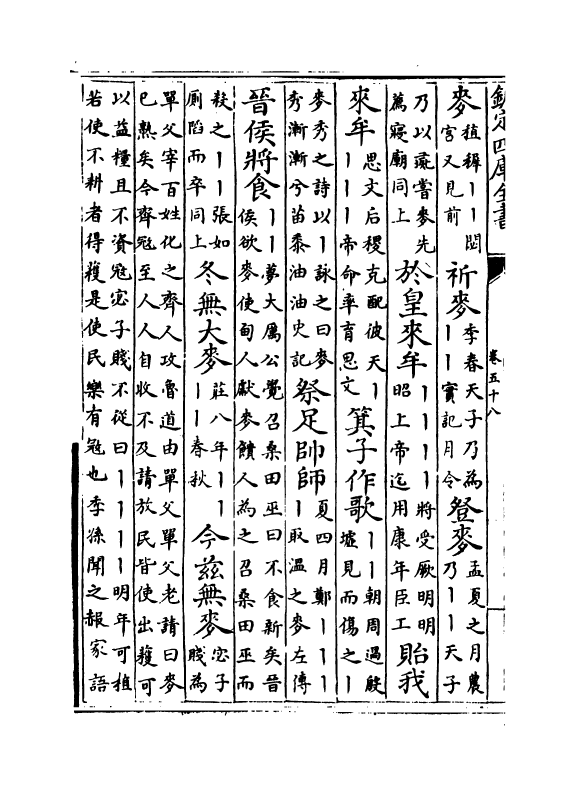 欽定四庫全書
卷五十八
麥植穉丨丨閟宫又見前 祈麥季春天子乃為丨丨實記月令 登麥孟夏之月農乃丨丨天子
乃以彘嘗麥先薦寢廟同上 於皇來牟丨丨丨丨將受厥明明昭上帝迄用康年臣工 貽我
來牟思文后稷克配彼天丨丨丨丨帝命率育思文 箕子作歌丨丨朝周過殷墟見而傷之丨
麥秀之詩以丨詠之曰麥秀漸漸兮苗黍油油史記 祭足帥師夏四月鄭丨丨丨丨取溫之麥左傳
晉侯將食丨丨夢大厲公覺召桑田巫曰不食新矣晉侯欲麥使甸人獻麥饋人為之召桑田巫而
殺之丨丨張如厠陷而卒同上 冬無大麥莊八年丨丨丨丨春秋 今兹無麥宓子賤為
單父宰百姓化之齊人攻魯道由單父單父老請曰麥已熟矣今齊冦至人人自收不及請放民皆使出穫可
以益糧且不資冦宓子賤不從曰丨丨丨丨明年可植若使不耕者得穫是使民樂有冦也季孫聞之赧家語